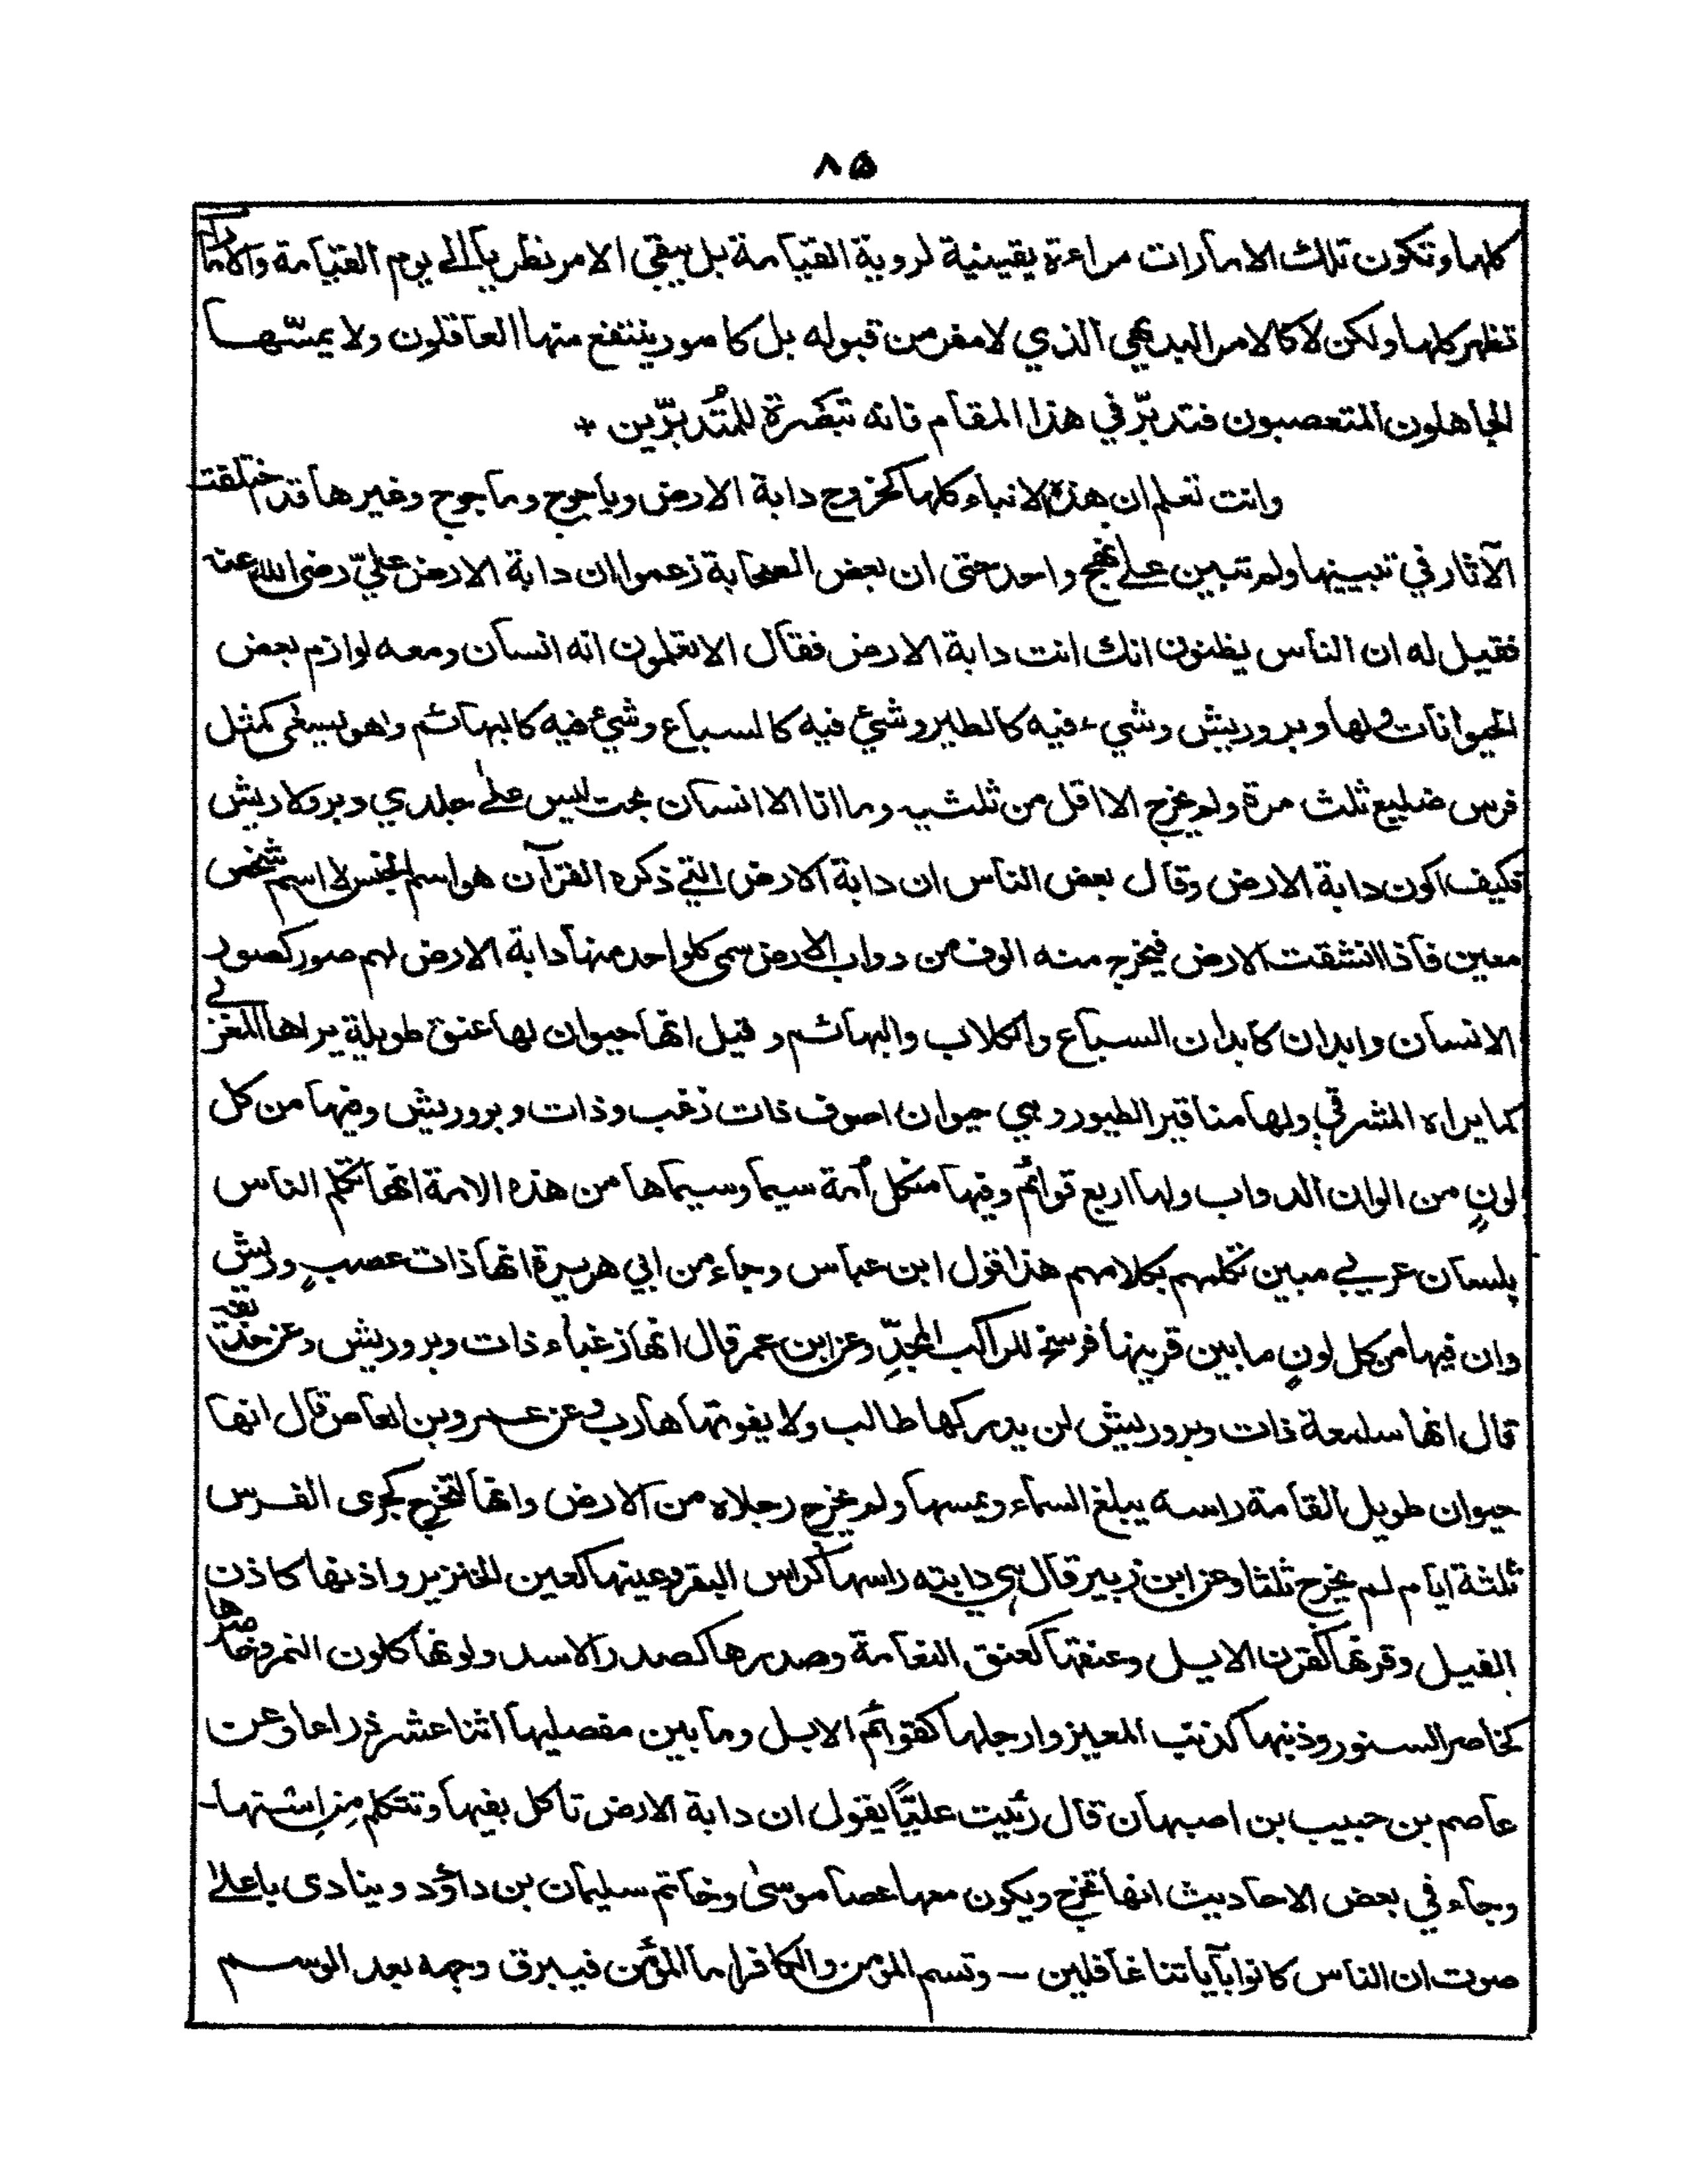 ۸۵
كلها وتكون تلك الامارات مراءة يقينية لروية القيامة بل يبقى الامر نظريا الى يوم القيامة والامارات
تظهر كلها ولكن لا كالامر البديهي الذي لا مفر من قبوله بل كامور ينتفع منها العاقلون ولا يمسّها
الجاهلون المتعصبون فتدبّر في هذا المقام فانه تبصرة للمتدبّرين *
وانت تعلم ان هذه الانباء كلها كخروج دابة الارض وياجوج وماجوج وغيرها قد اختلفت
الآثار في تبيينها ولم تبين على نهج واحد حتى ان بعض الصحابة زعموا ان دابة الارض عليّ رضى الله عنه
فقيل له ان الناس يظنون انك انت دابة الارض فقال الا تعلمون انه انسان ومعه لوازم بعض
الحيوانات ولها وبر وريش وشيء فيه كالطير وشيئ فيه كالسباع وشيئ فيه كالبهائم وهو يسعى كمثل
فرس ضليع ثلث مرة ولم يخرج الا اقل من ثلثيه وما انا الا انسان بحت ليس على جلدي وبر ولا ريش
فكيف اكون دابة الارض وقال بعض الناس ان دابة الارض التي ذكره القرآن هو اسم الجنس لا اسم شخص
معين فاذا انشقت الارض فيخرج منه الوف من دواب الارض سمى كل واحد منها دابة الارض لهم صور كصور
الانسان وابدان كابدان السباع والكلاب والبهائم وقيل انها حيوان لها عنق طويلة يراها المغربي
كما يراه المشرقي ولها مناقير الطيور وهي حيوان اصوف ذات زغب وذات وبر وريش وفيها من كل
لونٍ من الوان الدواب ولها اربع قوائم وفيها من كل اُمة سيما وسيماها من هذه الامة انها تكلم الناس
بلسان عربي مبين تكلمهم بكلامهم هذا قول ابن عباس وجاء من ابي هريرة انها ذات عصب وريش
وان فيها من كل لونٍ ما بين قرنيها فرسخ للراكب المجدِّ وعن ابن عمر قال انها زغباء ذات وبر وريش وعن حذيفة
قال انها ململمة ذات وبر وريش لن يدركها طالب ولا يفوتها هارب وعن عمرو بن العاص قال انها
حيوان طويل القامة راسه يبلغ السماء ويمسها ولم يخرج رجلاه من الارض وانها لتخرج كجرى الفرس
ثلثة ايام لم يخرج ثلثا وعن ابن زبير قال هي دابته راسها كراس البقر وعينها كعين الخنزير واذنها كاذن
الفيل وقرنها كقرن الايل وعنقها كعنق النعامة وصدرها كصدر الاسد ولونها كلون النمر وخاصرها
كخاصر السنور وذنبها كذنب المعيز وارجلها كقوائم الابل وما بين مفصليها اثنا عشر ذراعا وعن
عاصم بن حبيب بن اصبهان قال رئيت عليًّا يقول ان دابة الارض تاكل بفيها وتتكلم من استها-
وجاء في بعض الاحاديث انها تخرج ويكون معها عصا موسىٰ وخاتم سليمان بن داؤد وينادى باعلىٰ
صوت ان الناس كانوا بآياتنا غافلين — وتسم المؤمن والكافر اما المؤمن فيبرق وجهه بعد الوسم